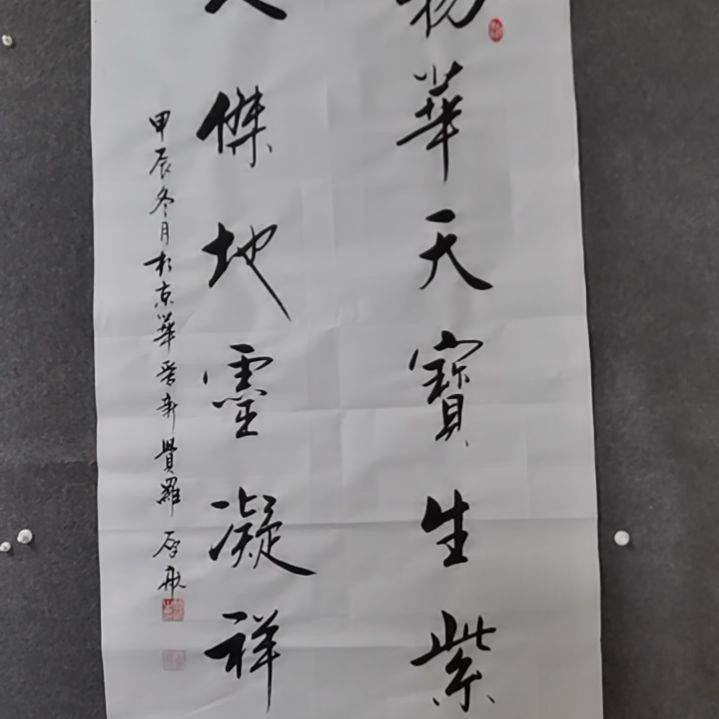 物華天寶生紫
人傑地靈凝祥
甲辰冬月於京華愛新覺羅啓航